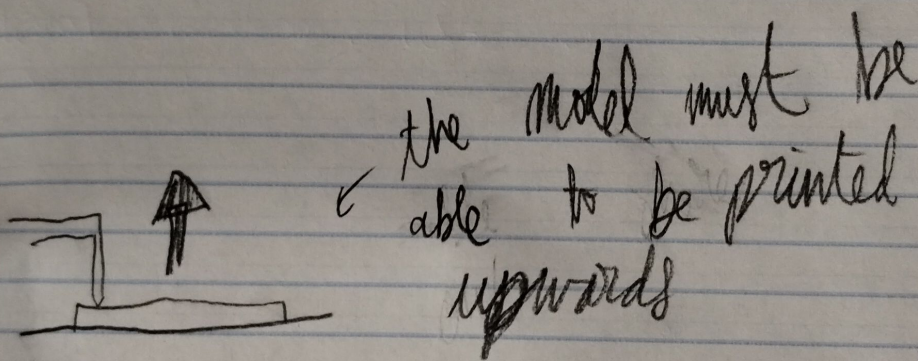 the model must be
able to be printed
upwards